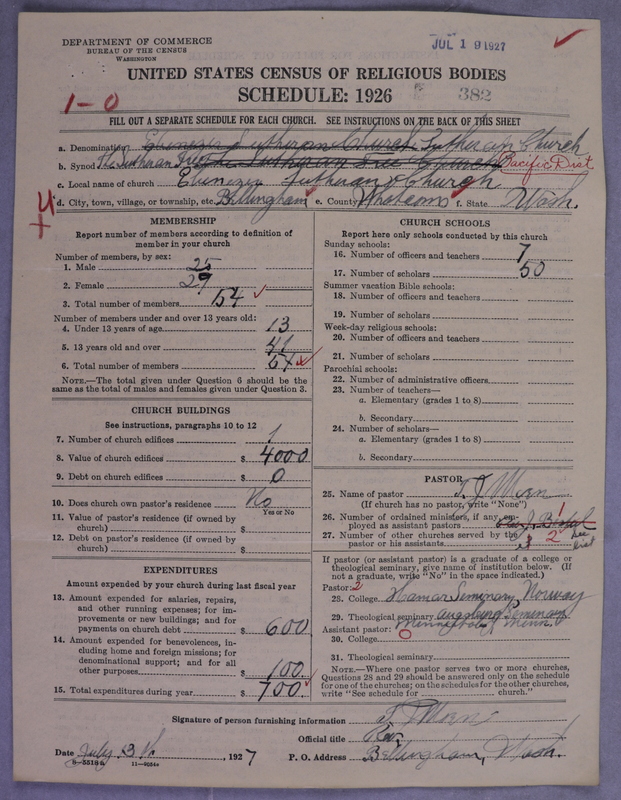 DEPARTMENT OF COMMERCE
BUREAU OF THE CENSUS
WASHINGTON
JUL 19 1927
UNITED STATES CENSUS OF RELIGIOUS BODIES
SCHEDULE: 1926
382
1-0
FILL OUT A SEPARATE SCHEDULE FOR EACH CHURCH. SEE INSTRUCTIONS ON THE BACK OF THIS SHEET
a. Denomination Ebenezer Lutheran Church Lutheran Church
b. Synod The Lutheran Free The Lutheran Free Church Pacific Dist
c. Local name of church Ebenezer Lutheran Church
d. City, town, village, or township, etc. Bellingham e. County Whatcom f. State Wash.
MEMBERSHIP
Report number of members according to definition of
member in your church
Number of members, by sex:
1. Male 25
2. Female 29
3. Total number of members 54
Number of members under and over 13 years old:
4. Under 13 years of age 13
5. 13 years old and over 41
6. Total number of members 54
NOTE.—The total given under Question 6 should be
same as the total of males and females given under Question 3.
CHURCH BUILDINGS
See instructions, paragraphs 10 to 12
7. Number of church edifices 1
8. Value of church edifices $ 4000
9. Debt on church edifices $ 0
10. Does church own pastor's residence No
Yes or No
11. Value of pastor's residence (if owned by
church) $
12. Debt on pastor's residence (if owned by
church) $
EXPENDITURES
Amount expended by your church during last fiscal year
13. Amount expended for salaries, repairs,
and other running expenses; for im-
provements or new buildings; and for
payments on church debt $ 600
14. Amount expended for benevolences, in-
cluding home and foreign missions; for
denominational support; and for all
other purposes $ 100.
15. Total expenditures during year $ 700
CHURCH SCHOOLS
Report here only schools conducted by this church
Sunday schools:
16. Number of officers and teachers 7
17. Number of scholars 50
Summer vacation Bible schools:
18. Number of officers and teachers
19. Number of scholars
Week-day religious schools:
20. Number of officers and teachers
21. Number of scholars
Parochial schools:
22. Number of administrative officers
23. Number of teachers—
a. Elementary (grades 1 to 8)
b. Secondary
24. Number of scholars—
a. Elementary (grades 1 to 8)
b. Secondary
PASTOR
25. Name of pastor T. J. Moen
(If church has no pastor, write "None")
26. Number of ordained ministers, if any, em-
ployed as assistant pastors
27. Number of other churches served by the
pastor or his assistants 2 see list
If pastor (or assistant pastor) is a graduate of a college or
theological seminary, give name of institution below. (If
not a graduate, write "No" in the space indicated.)
Pastor: 2
28. College Hamar Seminary Norway
29. Theological seminary Augsburg Seminary
Minneapolis, Minn.
Assistant pastor: 0
30. College
31. Theological seminary
NOTE.—Where one pastor serves two or more churches,
Questions 28 and 29 should be answered only on the schedule
for one of the churches; on the schedules for the other churches,
write "See schedule for church."
Signature of person furnishing information T. J. Moen
Official title Rev.
Date July 3, 1927 P. O. Address Bellingham, Wash.
8-5518a 11-9084a